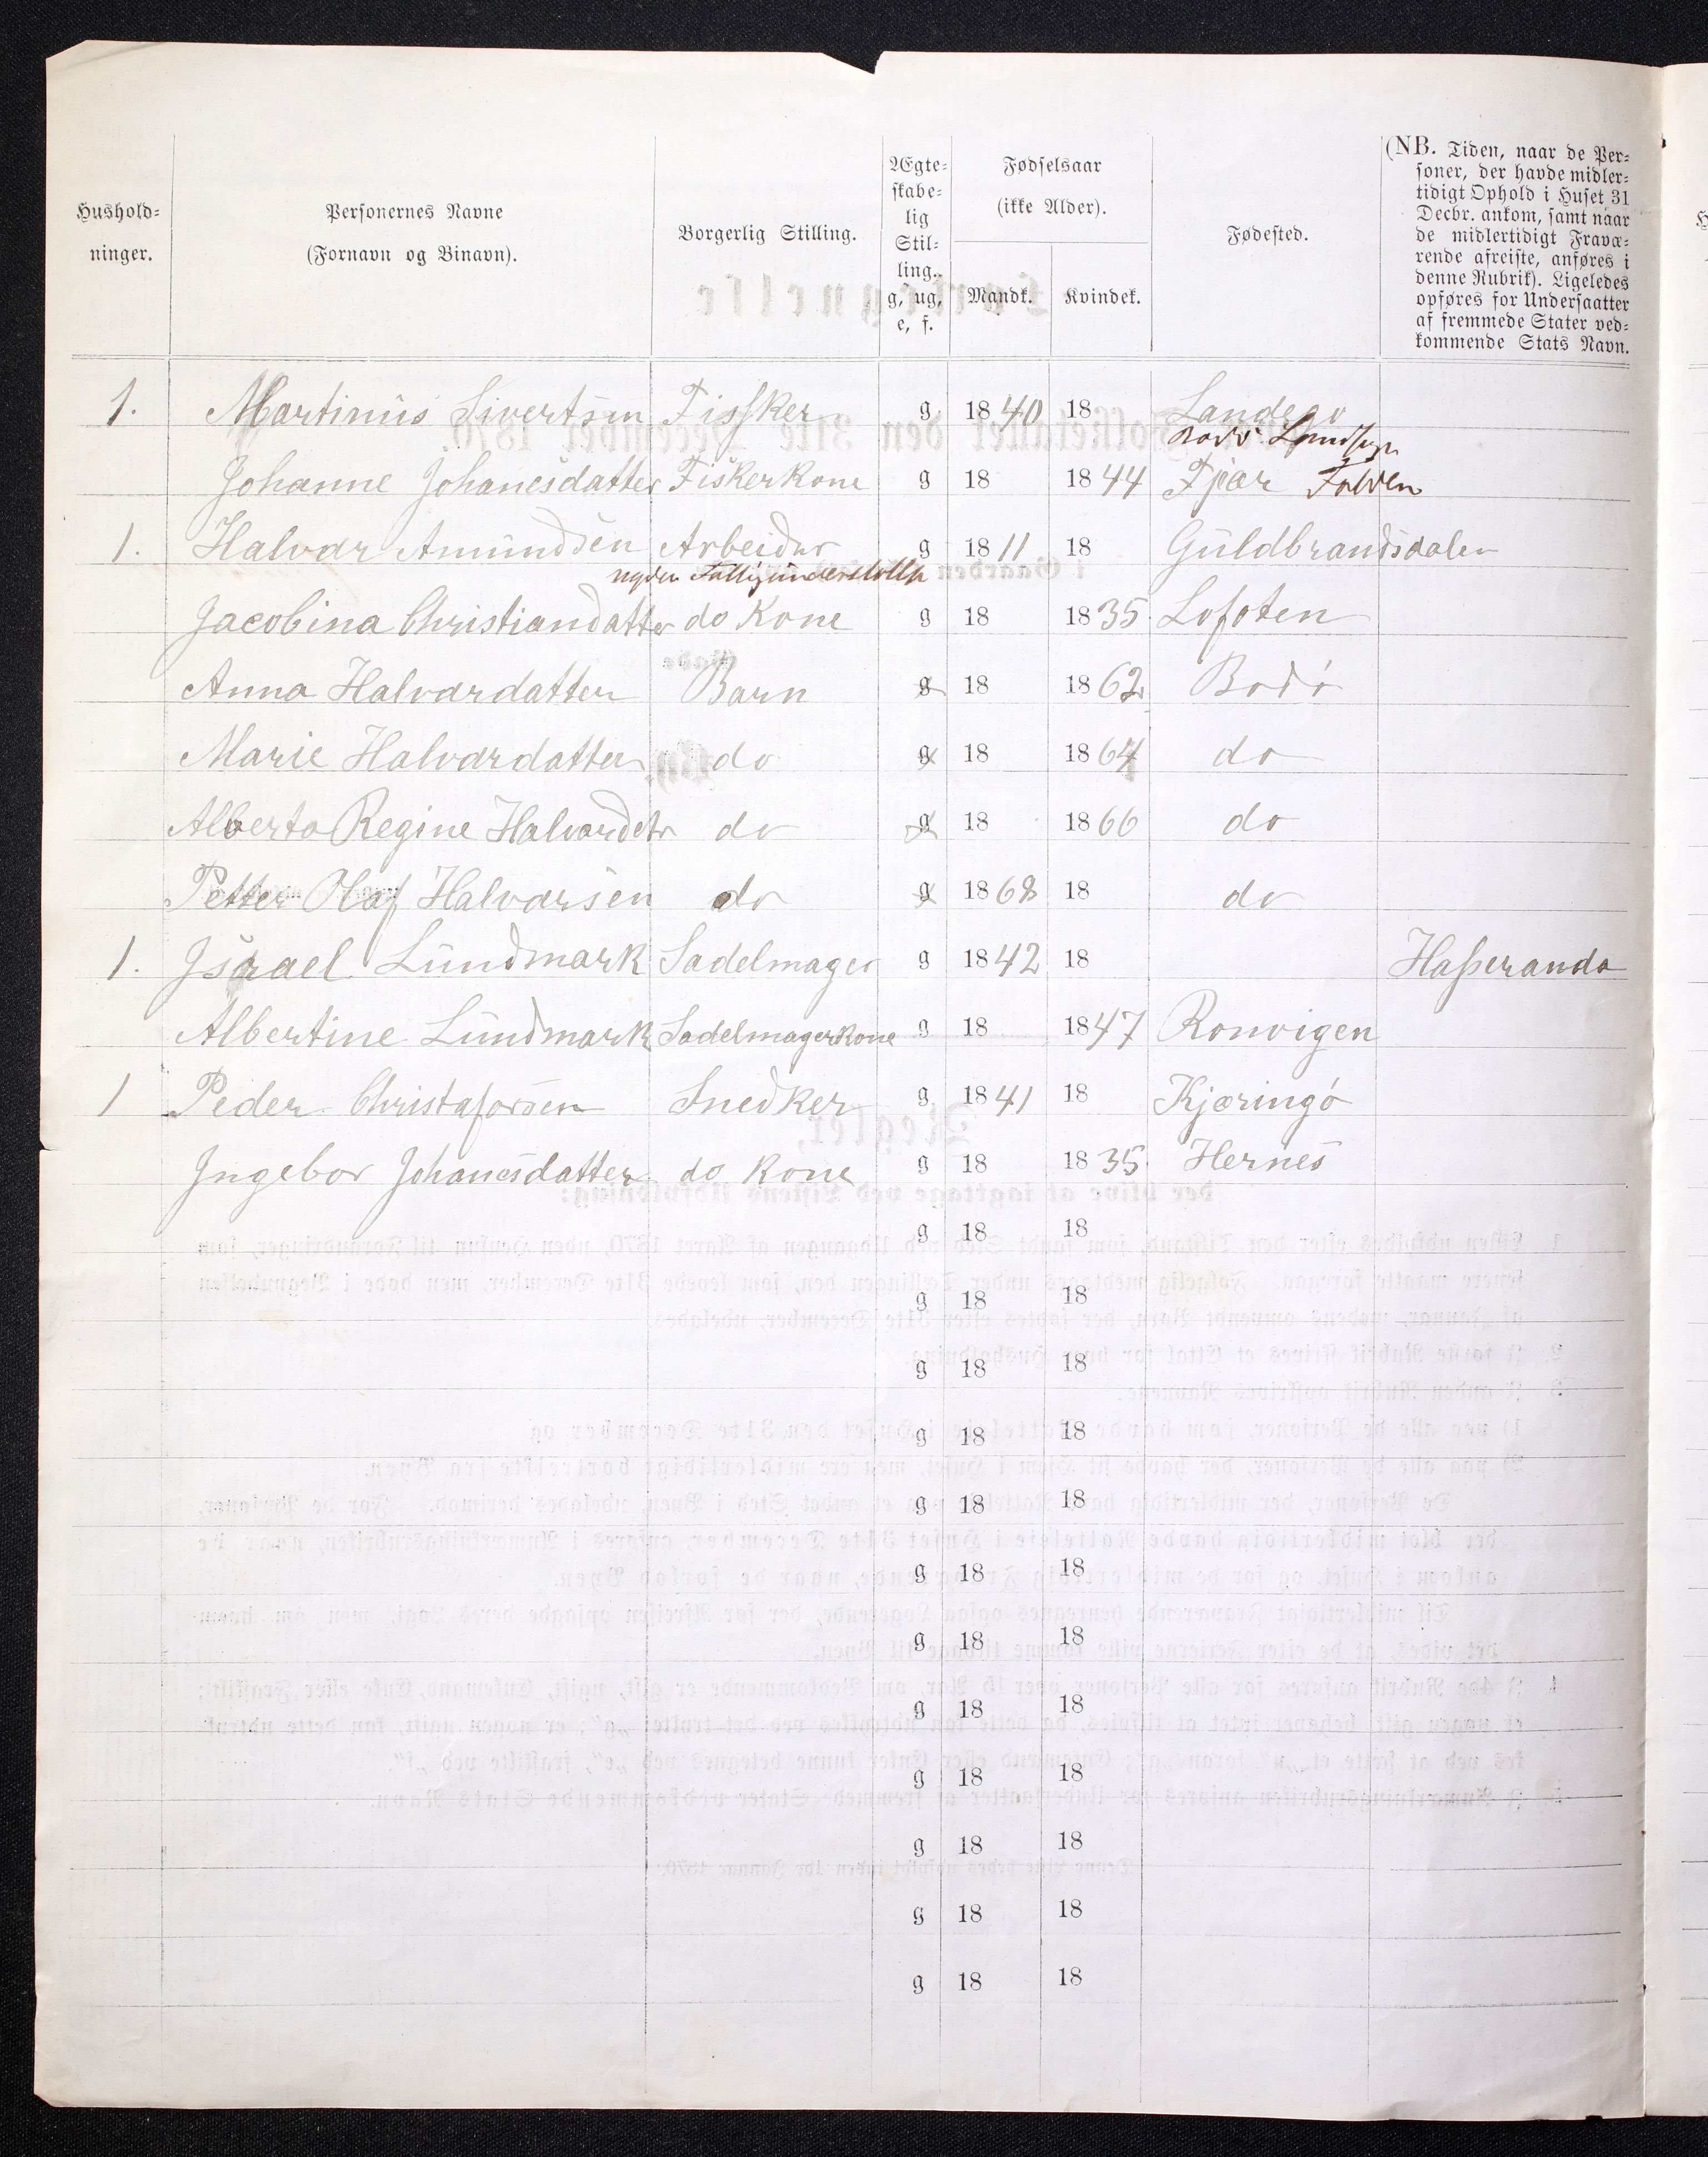 Hushold-
ninger.
Personernes Navne
(Fornavn og Binavn).
Borgerlig Stilling.
Ægte-
skabe-
lig
Stil-
ling.
g, ug,
e, f.
Fødselsaar
(ikke Alder).
Mandk. Kvindek.
Fødested.
(NB. Tiden, naar de Per-
soner, der havde midler-
tidigt Ophold i Huset 31
Decbr. ankom, samt naar
de midlertidigt Fravæ-
rende afreiste, anføres i
denne Rubrik). Ligeledes
opføres for Undersaatter
af fremmede Stater ved-
kommende Stats Navn.
1. Martinus Sivertsen Fissker g 1840 18 Landego
Bodø Landsogn
Johanne Johanesdatter Fiskerkone g 18 1844 Fjær Folden
1. Halvar Amundsen Arbeider g 1811 18 Guldbrandsdalen
nyder Fattigunderstøttelse
Jacobina Christiandatter do Kone g 18 1835 Lofoten
Anna Halvardatter Barn g 18 1862 Bodö
Marie Halvardatter do g 18 1864 do
Alberta Regine Halvardtr do g 18 1866 do
Petter Olaf Halvarsen do g 1868 18 do
1. Israel Lundmark Sadelmager g 1842 18 Haperanda
Albertine Lundmark Sadelmagerkone g 18 1847 Ronvigen
1 Peder Christaforsen Snedker g 1841 18 Kjæringö
Ingebor Johanesdatter do Kone g 18 1835 Hernes
g 18 18
g 18 18
g 18 18
g 18 18
g 18 18
g 18 18
g 18 18
g 18 18
g 18 18
g 18 18
g 18 18
g 18 18